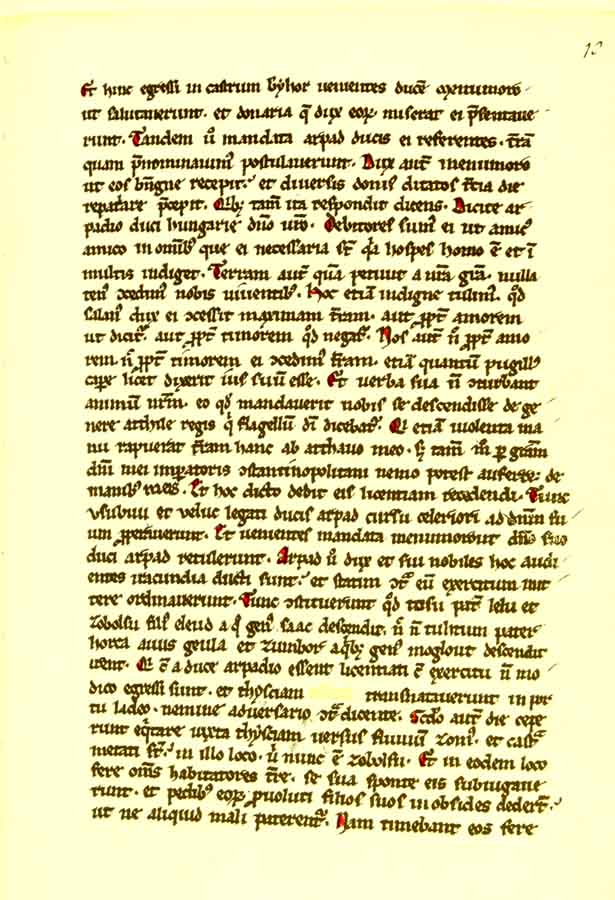 13
Et hinc egressi in castrum byhor uenientes ducē menumorout
ut salutauerunt. et donaria q̄ dux eoꝝ miserat ei p̄sentaue
runt. Tandem ū mandata arpad ducis ei referentes. t̄rā
quam p̄nominauimꝰ postulauerunt. Dux aut̄ menumorout
ut eos bn̄igne recepit. et diuersis donis ditatos t̄cia die
repatare p̄cepit. Qͥbꝫ tam̄ ita respondit dicens. Dicite ar
padio duci hungarie dn̄o ur̄o. Debitores sumꝰ ei ut amicꝰ
amico in om̄ibꝫ que ei necessaria st̄ qͥa hospes homo ē et ī
multis indiget. Terram aut̄ quā petiuit a nr̄a gr̄a. nulla
tenꝰ ꝯcedimꝰ nobis uiuentibꝫ. Hoc etiā indigne tulimꝰ. qd̄
salanꝰ dux ei ꝯcessit maximam t̄ram. aut ꝓpt̄ amorem
ut dicitᷣ. aut ꝓpt̄ timorem qd̄ negatᷣ. Nos aut̄ n̄ ꝓpt̄ amo
rem n̄ ꝓpt̄ timorem ei ꝯcedimꝰ t̄ram. etiā quantū pugillꝰ
cap̄e licet dixerit ius suū esse. Et uerba sua n̄ ꝯturbant
animū nr̄m. eo qd̄ mandauerit nobis se descendisse de ge
nere atthile regis qͥ flagellū dī dicebatᷣ. Qͥ etiā uiolenta ma
nu rapuerat t̄ram hanc ab atthauo meo. sꝫ tam̄ mͦ ꝑ gr̄am
dn̄i mei imꝑatoris ꝯstantinopolitani nemo potest auferre de
manibꝫ meis. Et hoc dicto dedit eis licentiam recedendi. Tunc
vsubuu et veluc legati ducis arpad cursu celeriori ad dn̄m su
um ꝓperauerunt. Et uenientes mandata menumorout dn̄o suo
duci arpad retulerunt. Arpad ū dux et sui nobiles hoc audi
entes iracundia ducti sunt. et statim ꝯt̄ eū exercitum mit
tere ordinauerunt. Tunc ꝯstituerunt qd̄ tosu pat̄ lelu et
zobolsu filꝰ eleud a qͦ genꝰ saac descendit. n̄ n̄ tuhutum pater
horca auus geula et zumbor a qͥbꝫ genꝰ moglout descendit
irent. Qͥ cū a duce arpadio essent licentiati cū exercitu n̄ mo
dico egressi sunt. et thysciam transnatauerunt in por
tu ladeo. nemine aduersario ꝯt̄dicente. Scd̄o aut̄ die cepe
runt eq̄tare iuxta thysciam uersus fluuiū zomꝰ. et cast̄
metati st̄. in illo loco. u̇ nunc ē zobolsu. Et in eodem loco
fere om̄s habitatores t̄re. se sua sponte eis subiugaue
runt. et pedibꝫ eoꝝ ꝓuoluti filios suos in obsides dedert̄.
ut ne aliquid mali paterentᷣ. Nam timebant eos fere